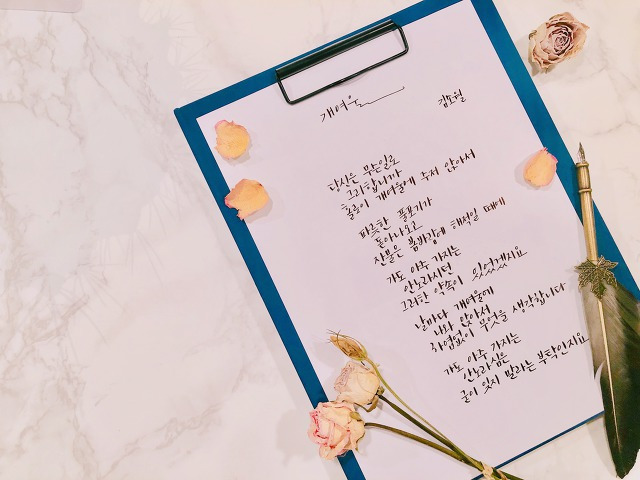 개여울
김소월
당신은 무슨일로
그리합니까
홀로이 개여울에 주저 앉아서
파릇한 풀포기가
돋아나오고
잔물은 봄바람에 해적일 때에
가도 아주 가지는
안노라시던
그러한 약속이 있었겠지요
날마다 개여울에
나와 앉아서
하염없이 무엇을 생각합니다
가도 아주 가지는
안노라심은
굳이 잊지 말라는 부탁인지요